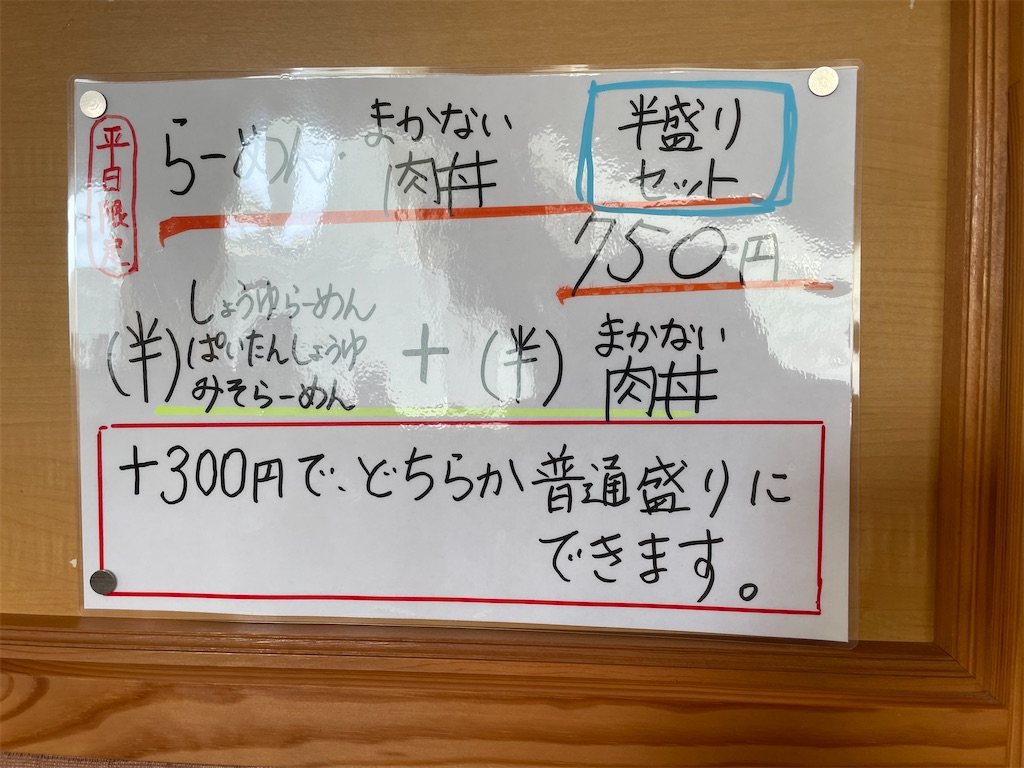 平日限定
らーめん・まかない肉丼
半盛り
セット
750円
(半)
しょうゆらーめん
ぱいたんしょうゆ
みそらーめん
+
(半)
まかない
肉丼
+300円で、どちらか普通盛りに
できます。